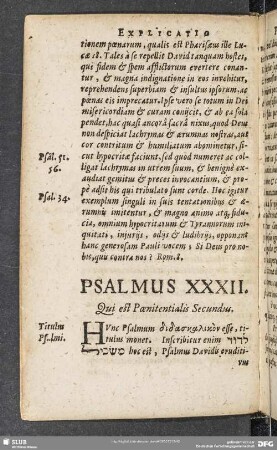 EXPLICATIO
tionem pœnarum, qualis est Pharisæus ille Lu-
cæ 18. Tales à se repellit David tanquam hostes,
qui fidem & spem afflictorum evertere conan-
tur, & magna indignatione in eos invehitur,
reprehendens superbiam & insultus ipsorum, ac
pœnas eis imprecatur. Ipse vero se totum in Dei
misericordiam & curam conjicit, & ab ea sola
pendet, hac quasi ancorâ sacrâ nixus, quod Deus
non despiciat lachrymas & ærumnas nostras, aut
cor contritum & humiliatum abominetur, si-
Psal. 51.
cut hypocritæ faciunt, sed quod numeret ac col-
56.
ligat lachrymas in utrem suum, & benignè ex-
audiat gemitus & preces invocantium, & pro-
Psal. 34.
pè adsit his qui tribulato sunt corde. Hoc igitur
exemplum singuli in suis tentationibus & æ-
rumnis imitentur, & magno animo atq; fidu-
cia, omnium hypocritarum & Tyrannorum ini-
quitati, injuriis, odiis & ludibriis, opponant
hanc generosam Pauli vocem, Si Deus pro no-
bis, quis contra nos? Rom. 8.
PSALMUS XXXII.
Qui est Pœnitentialis Secundus.
Titulus
HUnc Psalmum διδασκαλικὸν esse, ti-
Psalmi.
tulus monet. Inscribitur enim לדוד
משכיל hoc est, Psalmus Davidis eruditi-
vus
SLUB
DFG